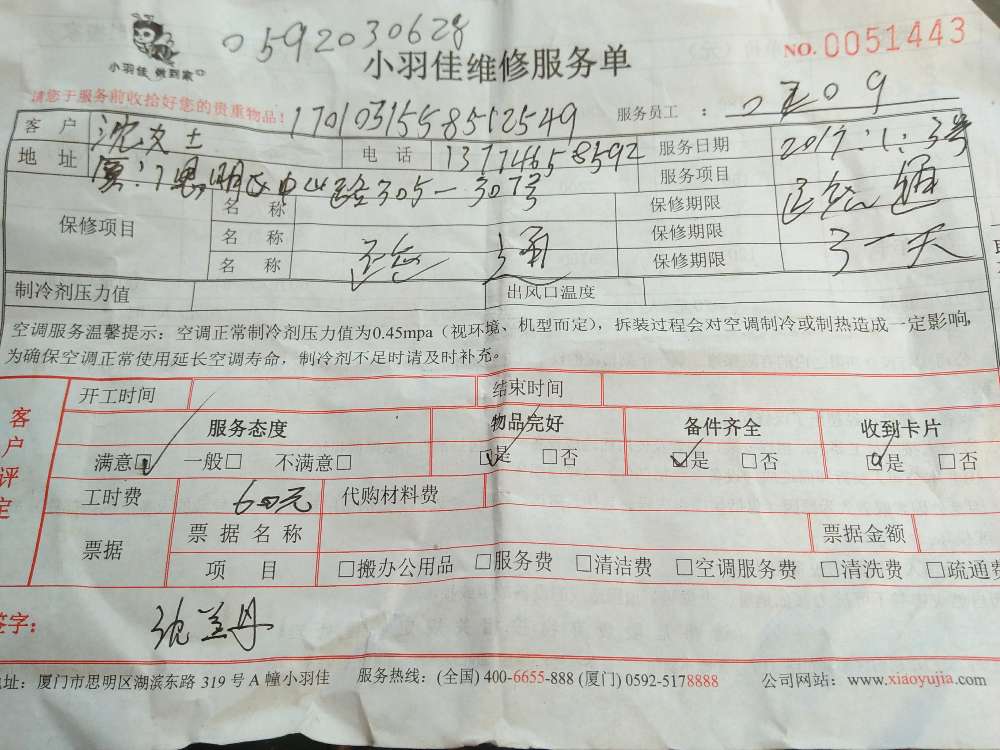 0592030628
小羽佳 做到家
小羽佳维修服务单
NO. 0051443
请您于服务前收拾好您的贵重物品!
1701031558512549
服务员工 :
客 户 沈女士 电 话 13774658592 服务日期 2017.1.3号
地 址 厦门思明区中山路305-307号 服务项目
保修项目
名 称 保修期限
名 称 保修期限
名 称 保修期限 了一天
制冷剂压力值 出风口温度
空调服务温馨提示：空调正常制冷剂压力值为0.45mpa（视环境、机型而定），拆装过程会对空调制冷或制热造成一定影响，
为确保空调正常使用延长空调寿命，制冷剂不足时请及时补充。
客户评定
开工时间 结束时间
服务态度 物品完好 备件齐全 收到卡片
满意□ 一般□ 不满意□ □是 □否 □是 □否 □是 □否
工时费 600元 代购材料费
票据 票 据 名 称 票据金额
项 目 □搬办公用品 □服务费 □清洁费 □空调服务费 □清洗费 □疏通费
签字：
地址：厦门市思明区湖滨东路 319 号 A 幢小羽佳 服务热线：(全国) 400-6655-888 (厦门) 0592-5178888 公司网站：www.xiaoyujia.com